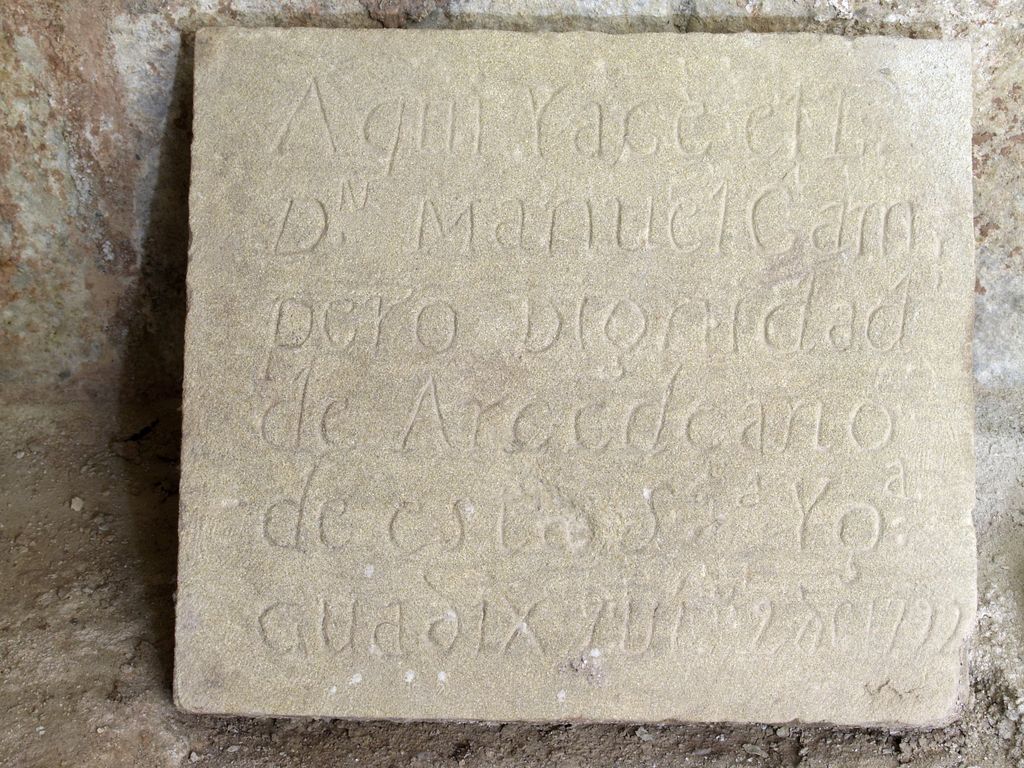 Aqui Yace el L.
D.N Manuel Cam,
pero Dignidad
de Arcedeano
de esta S.
Guadix 1792